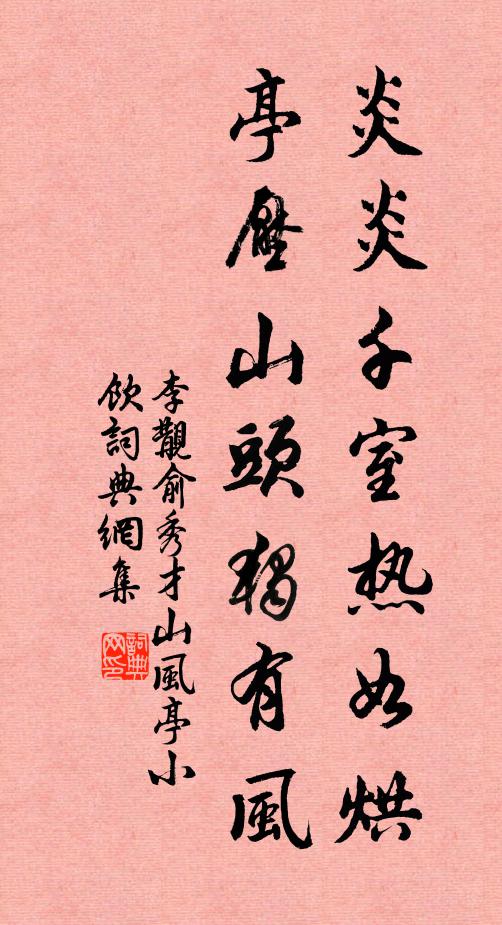 炎炎千室热如烘
亭壓山頭獨有風
李覯俞秀才山風亭小
飲詞典網集
詞典网印